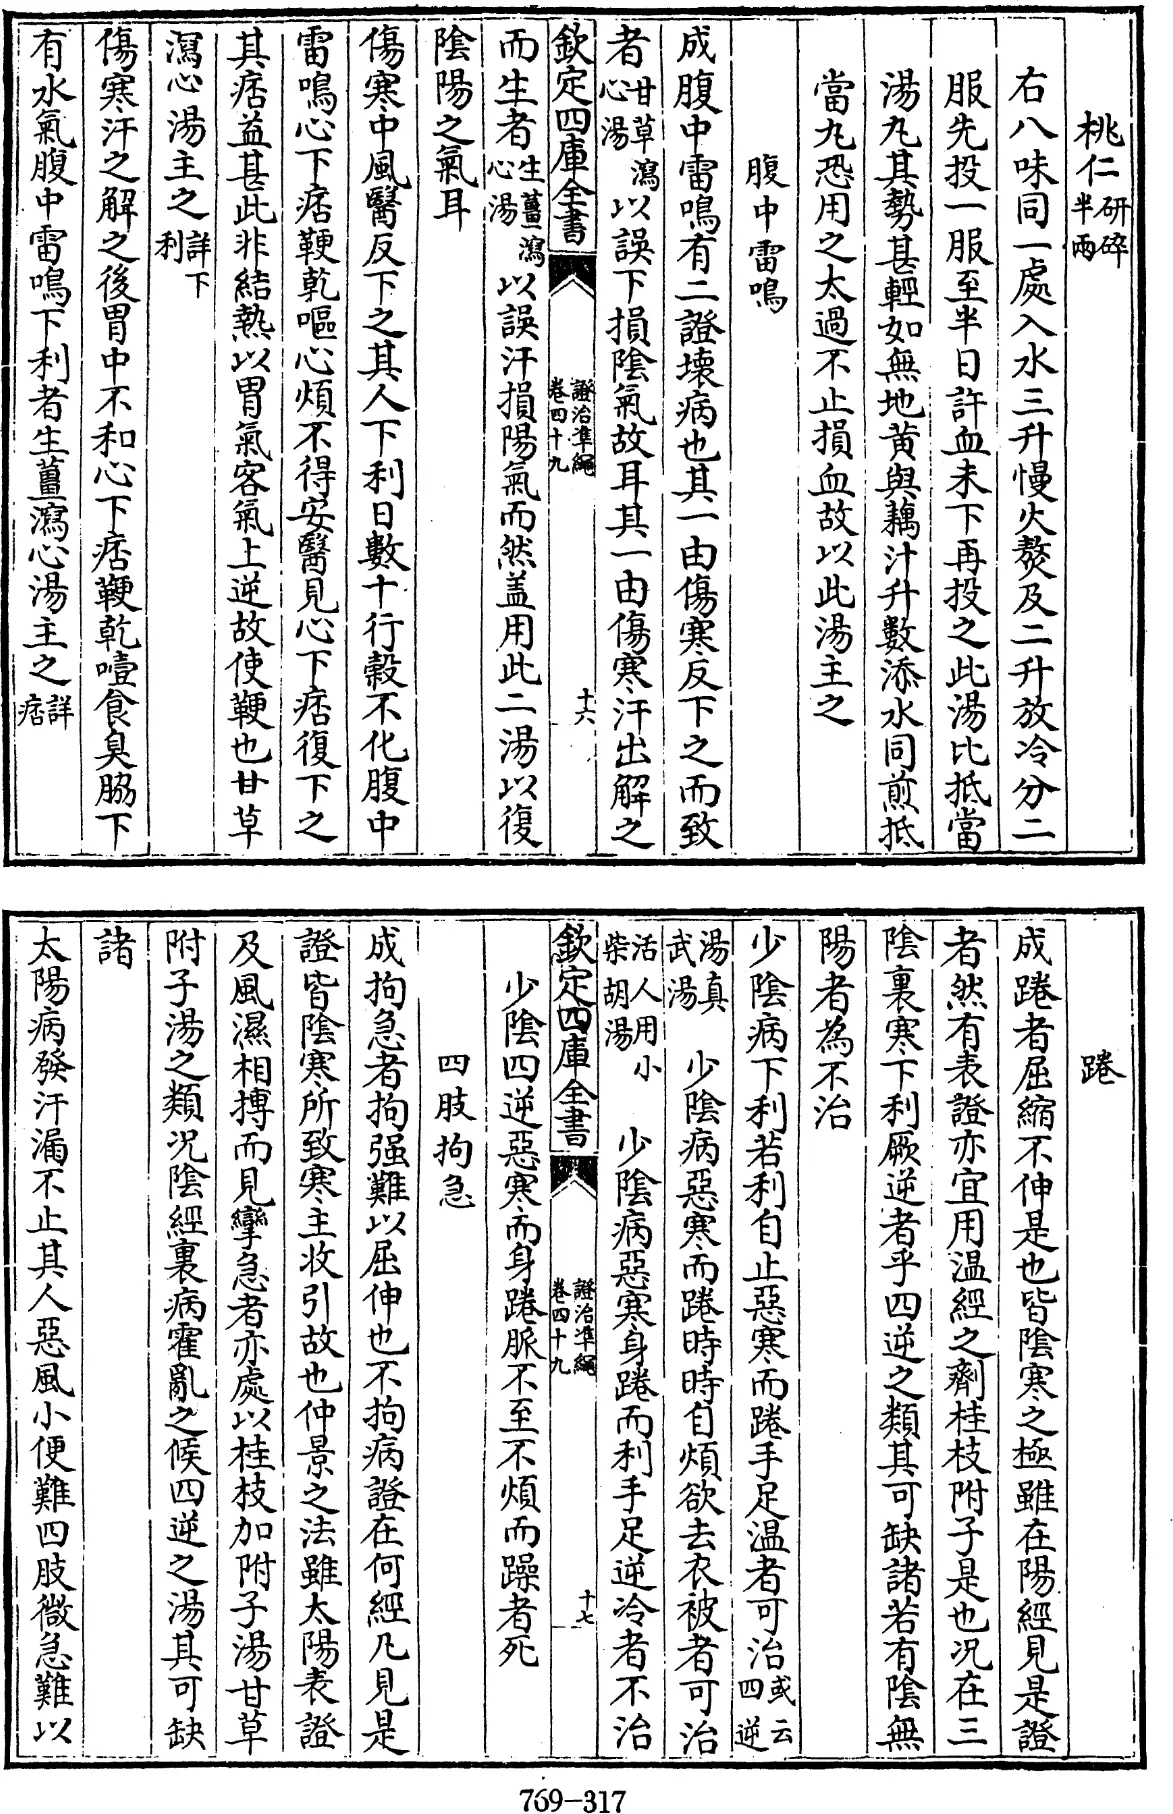 桃仁研碎半兩
右八味同一處入水三升慢火熬及二升放冷分二
服先投一服至半日許血未下再投之此湯比抵當
湯丸其勢甚輕如無地黄與藕汁升數添水同煎抵
當丸恐用之太過不止損血故以此湯主之
腹中雷鳴
成腹中雷鳴有二證壞病也其一由傷寒反下之而致
者甘草瀉心湯以誤下損陰氣故耳其一由傷寒汗出解之
欽定四庫全書
證治準繩
卷四十九
十六
而生者生薑瀉心湯以誤汗損陽氣而然盖用此二湯以復
陰陽之氣耳
傷寒中風醫反下之其人下利日數十行穀不化腹中
雷鳴心下痞鞕乾嘔心煩不得安醫見心下痞復下之
其痞益甚此非結熱以胃氣客氣上逆故使鞕也甘草
瀉心湯主之詳下利
傷寒汗之解之後胃中不和心下痞鞕乾噎食臭脇下
有水氣腹中雷鳴下利者生薑瀉心湯主之詳痞
踡
成踡者屈縮不伸是也皆陰寒之極雖在陽經見是證
者然有表證亦宜用温經之劑桂枝附子是也况在三
陰裏寒下利厥逆者乎四逆之類其可缺諸若有陰無
陽者為不治
少陰病下利若利自止惡寒而踡手足温者可治或云四逆
湯真武湯　少陰病惡寒而踡時時自煩欲去衣被者可治
活人用小柴胡湯　少陰病惡寒身踡而利手足逆冷者不治
欽定四庫全書
證治準繩
卷四十九
十七
少陰四逆惡寒而身踡脈不至不煩而躁者死
四肢拘急
成拘急者拘强難以屈伸也不拘病證在何經凡見是
證皆陰寒所致寒主收引故也仲景之法雖太陽表證
及風濕相搏而見攣急者亦處以桂枝加附子湯甘草
附子湯之類况陰經裏病霍亂之候四逆之湯其可缺
諸
太陽病發汗漏不止其人惡風小便難四肢微急難以
769-317